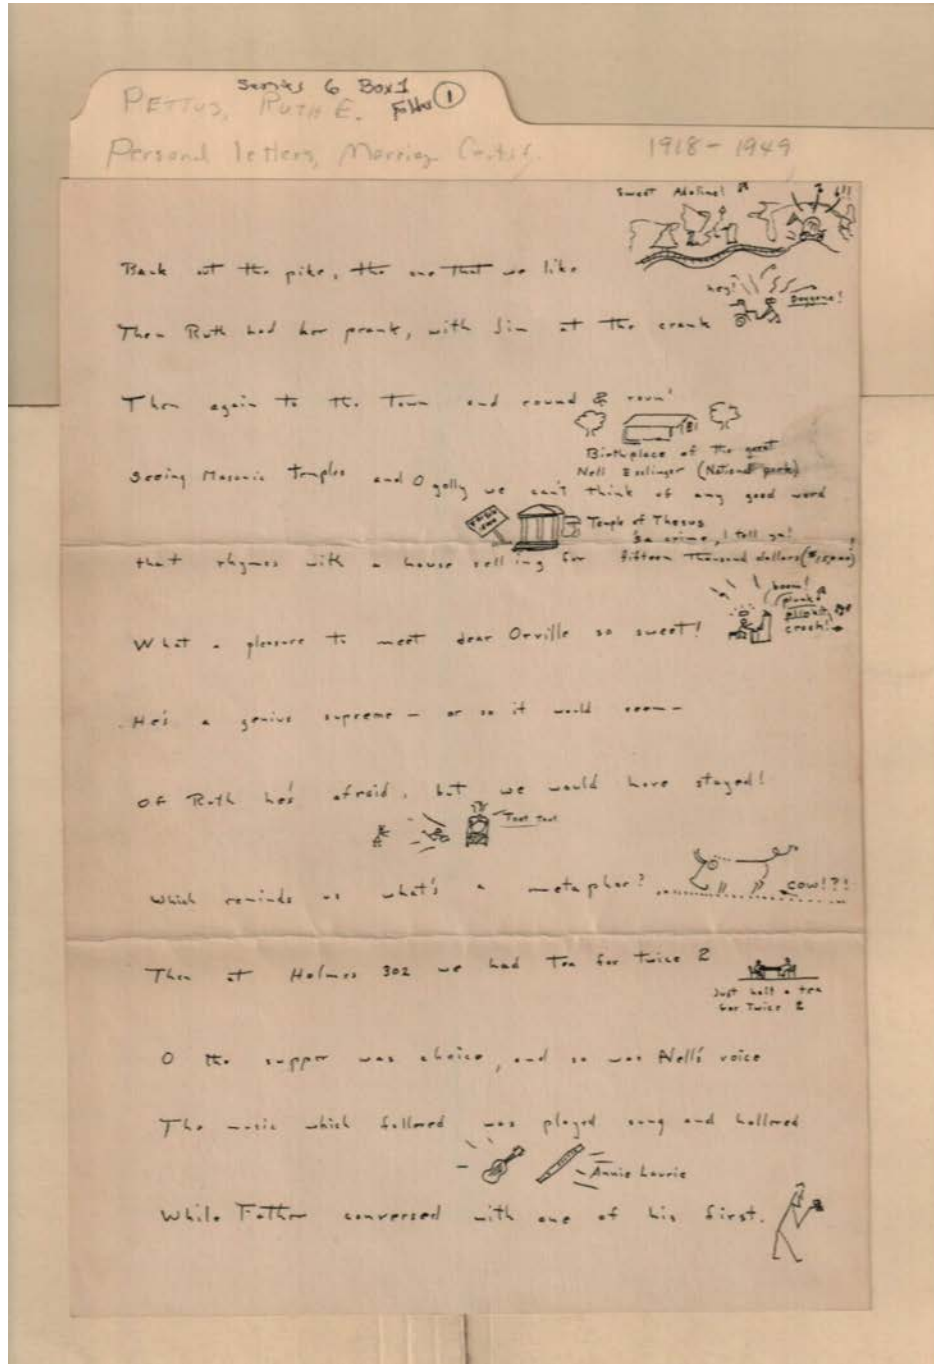 Series 6 Box 1
PETTUS, RUTH E. Folder 1
Personal letters, Marriage Certif. 1918-1949
Sweet Adeline!
Back out the pike, the one that we like
hey!
Doggone!
Then Ruth had her prank, with Jim at the crank
Then again to the town and round & roun'
Birthplace of the great
Nell Esslinger (National park)
Seeing Masonic Temples and O golly we can't think of any good word
Temple of Theseus
'Sa crime, I tell ya!
that rhymes with a house selling for fifteen thousand dollars ($15,000)
boom!
plunk
crash!
What a pleasure to meet dear Orville so sweet!
He's a genius supreme - or so it would seem -
Of Ruth he's afraid, but we would have stayed!
Toot toot
Which reminds us what's a metaphor? cow!?!
Then at Holmes 302 we had Tea for twice 2
Just half a tea
for Twice 2
O the supper was choice, and so was Nell's voice
The music which followed was played sung and hollered
Annie Laurie
While Father conversed with one of his first.